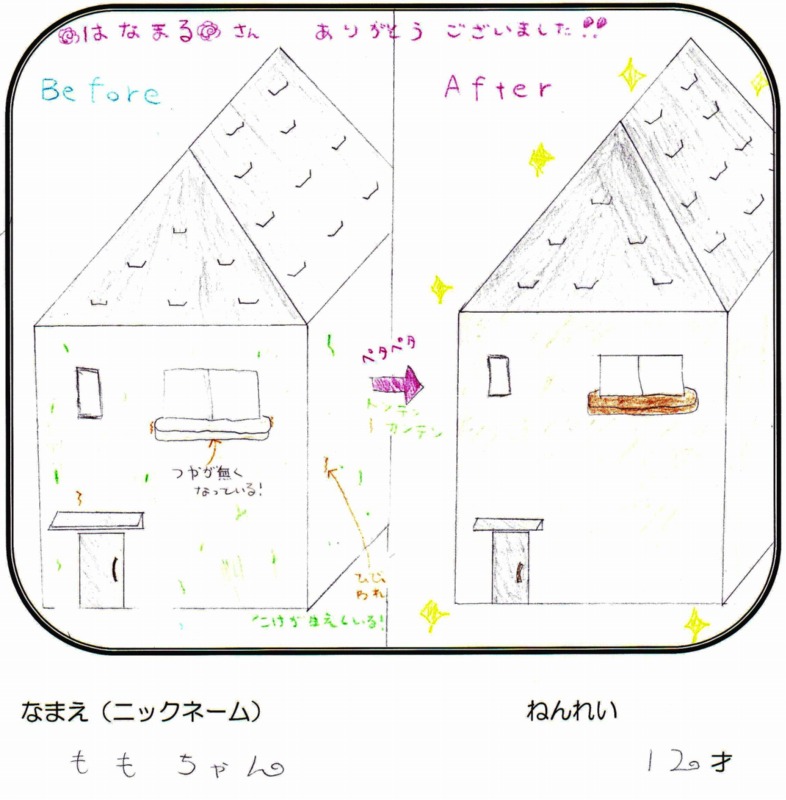 はなまるさん ありがとうございました!!
Before
After
ペタペタ
トンテン
カンテン
つやが無く
なっている!
ひび
われ
こけが生えている!
なまえ（ニックネーム）
ねんれい
ももちゃん
12才